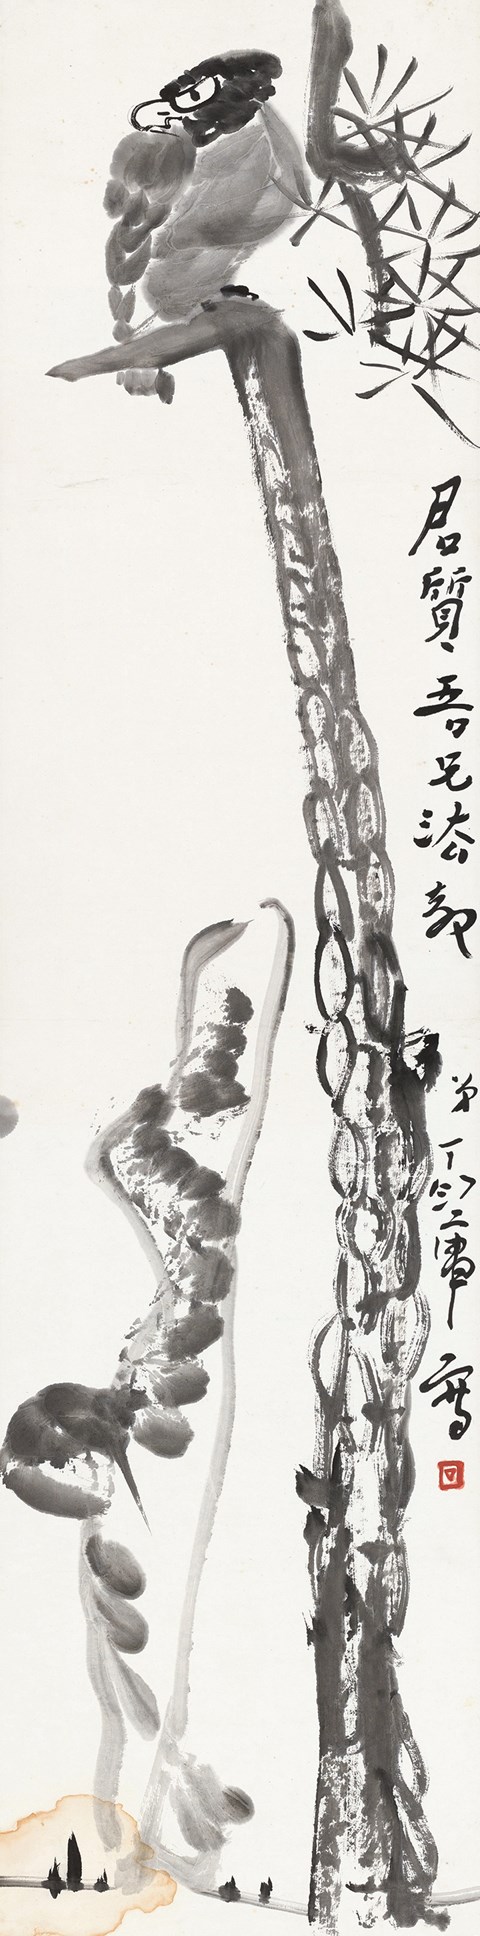 君質吾兄法教 弟丁衍庸寫